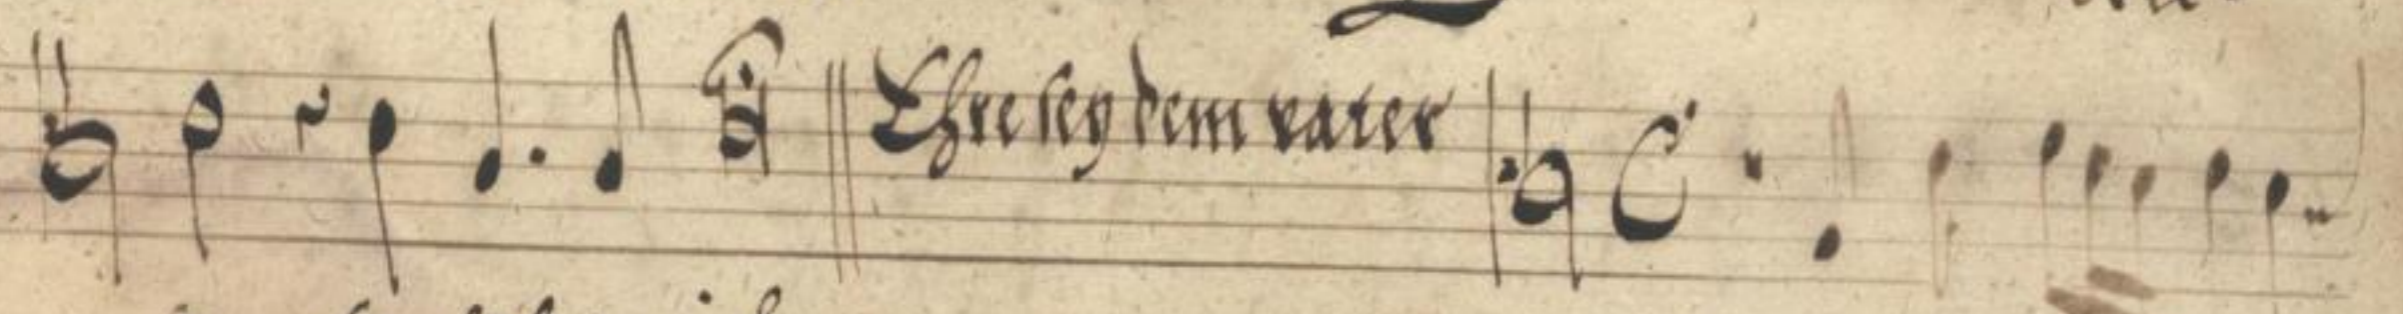 Ehre sey dem vater